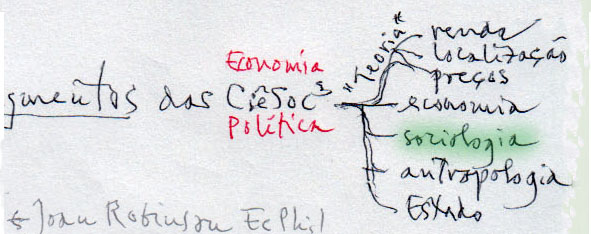 renda
localização
preços
"Teoria"
Economia
gmentos das CiêSoc³
Política
economia
sociologia
antropologia
Estado
← Joan Robinson EcPhil